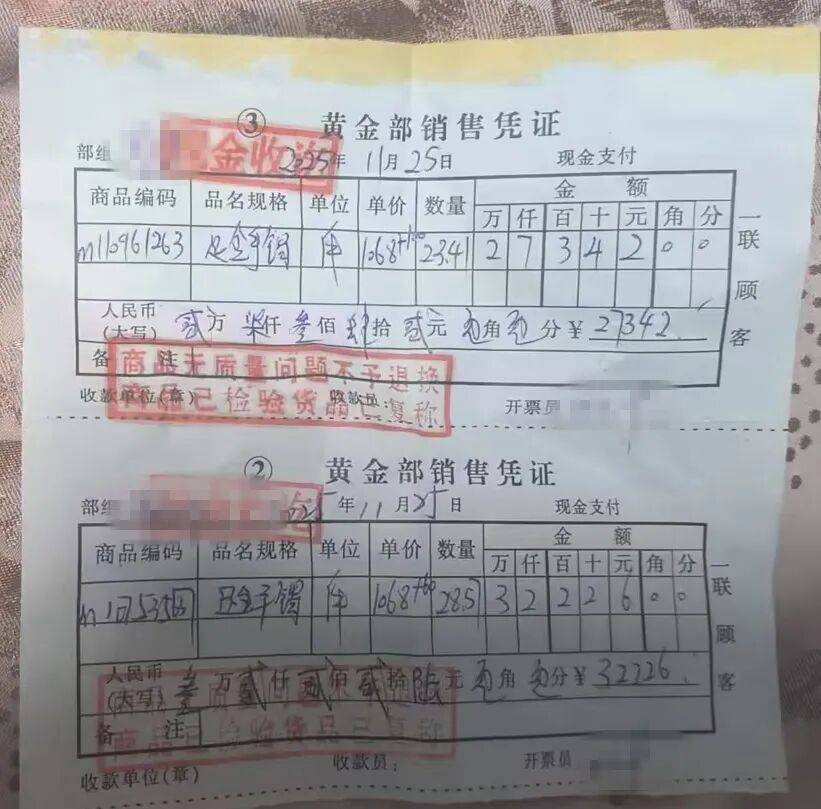 ③ 黄金部销售凭证
部组 金收讫 2025年11月25日 现金支付
商品编码 品名规格 单位 单价 数量 金额
万 仟 百 十 元 角 分
m110961263 足金手镯 件 1068+100 23.41 2 7 3 4 2 0 0
人民币(大写) 贰万柒仟叁佰肆拾贰元 角 分¥ 27342
备注
商品无质量问题不予退换
商品已检验货品已复称
收款单位(章) 收款员: 开票员
一联 顾客
② 黄金部销售凭证
部组 年11月25日 现金支付
商品编码 品名规格 单位 单价 数量 金额
万 仟 百 十 元 角 分
足金手镯 件 1068+60 28.57 3 2 2 2 6 0 0
人民币(大写) 叁万贰仟贰佰贰拾陆元 角 分¥ 32226
备注
商品已检验货品已复称
收款单位(章) 收款员: 开票员
一联 顾客